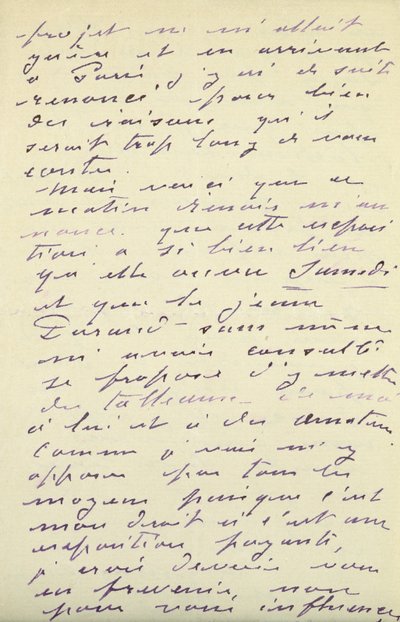 projet ne m'allait
guère et en arrivant
à Paris j'y ai de suite
renoncé, pour bien
des raisons qu'il
serait trop long de vous
conter.
Mais voici que ce
matin Renoir m'an
nonce que cette exposi
tion a si bien lieu
qu'elle ouvre Samedi
et que le jeune
Durand - sans même
m'avoir consulté
se propose d'y mettre
des tableaux de moi
à lui et à des amateurs.
Comme je vais m'y
opposer par tous les
moyens puisque c'est
mon droit et c'est une
exposition payante,
je crois devoir vous
en prévenir, non
pour vous influencer